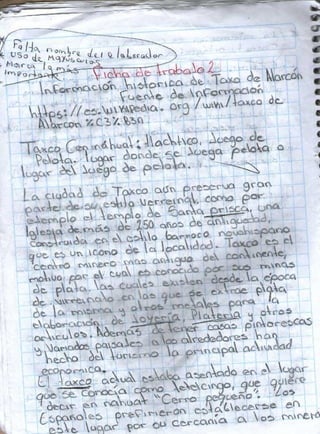 Falta nombre del elaborador
uso de Mayúsculas
Marca lo más
importante
Ficha de trabajo 2
Información historica de Taxo de Alarcón
Fuente de Información
https://es.wikipedia.org/wiki/taxco de
Alarcon %C3%B3n
Taxco (en nahuat: tlachtlco, Juego de
Pelota. lugar donde se Juega pelota o
lugar del Juego de pelota.
La ciudad de Taxco aún preserva gran
parte de su estilo verreinal, como por
ejemplo el templo de Santa prisca, una
Iglesia de más de 250 años de antiguedad,
construida en el estilo barroco novohispano
que es un icono de la localidad. Taxco es el
centro minero mas antiguo del continente,
motivo por el cual es conocido por sus minas
de plata, las cuales existen desde la época
de virreinato en las que se extrae plata
de la misma y otros metales para la
elaboración y Joyería, Platería y otros
articulos Además de tener casas pintorescas
y variados paisajes a los alrededores han
hecho del turismo la principal actividad
economica.
El taxco actual estaba asentado en el lugar
que se conocía como tetelcingo, que quiere
decir en nahuat "Cerro pequeño". Los
Españoles prefirieron establecerse en
este lugar por su cercania a los minera